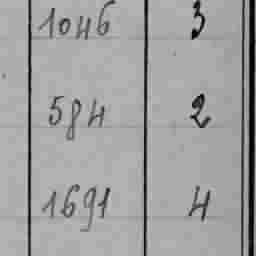 1046 3
584 2
1691 4